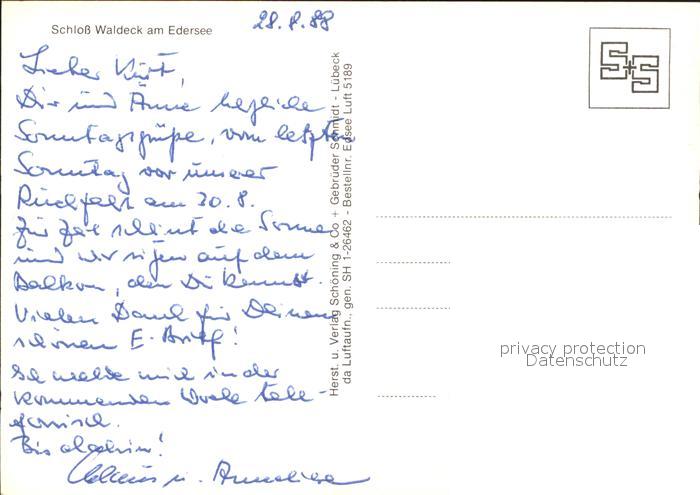 Schloß Waldeck am Edersee
28.8.88
Lieber Kurt,
Dir und Anne herzliche
Sonntagsgrüße, vom letzten
Sonntag vor unserer
Rückfahrt am 30.8.
Zur Zeit scheint die Sonne
und wir sitzen auf dem
Balkon, den Du kennst.
Vielen Dank für Deinen
schönen E-Brief!
Ich melde mich in der
kommenden Woche tele-
fonisch.
Bis dahin!
Claus u. Anneliese
Herst. u. Verlag Schöning & Co + Gebrüder Schmidt - Lübeck
da Luftaufn., gen. SH 1-26462 - Bestellnr. Edsee Luft 5189
S+S
privacy protection
Datenschutz